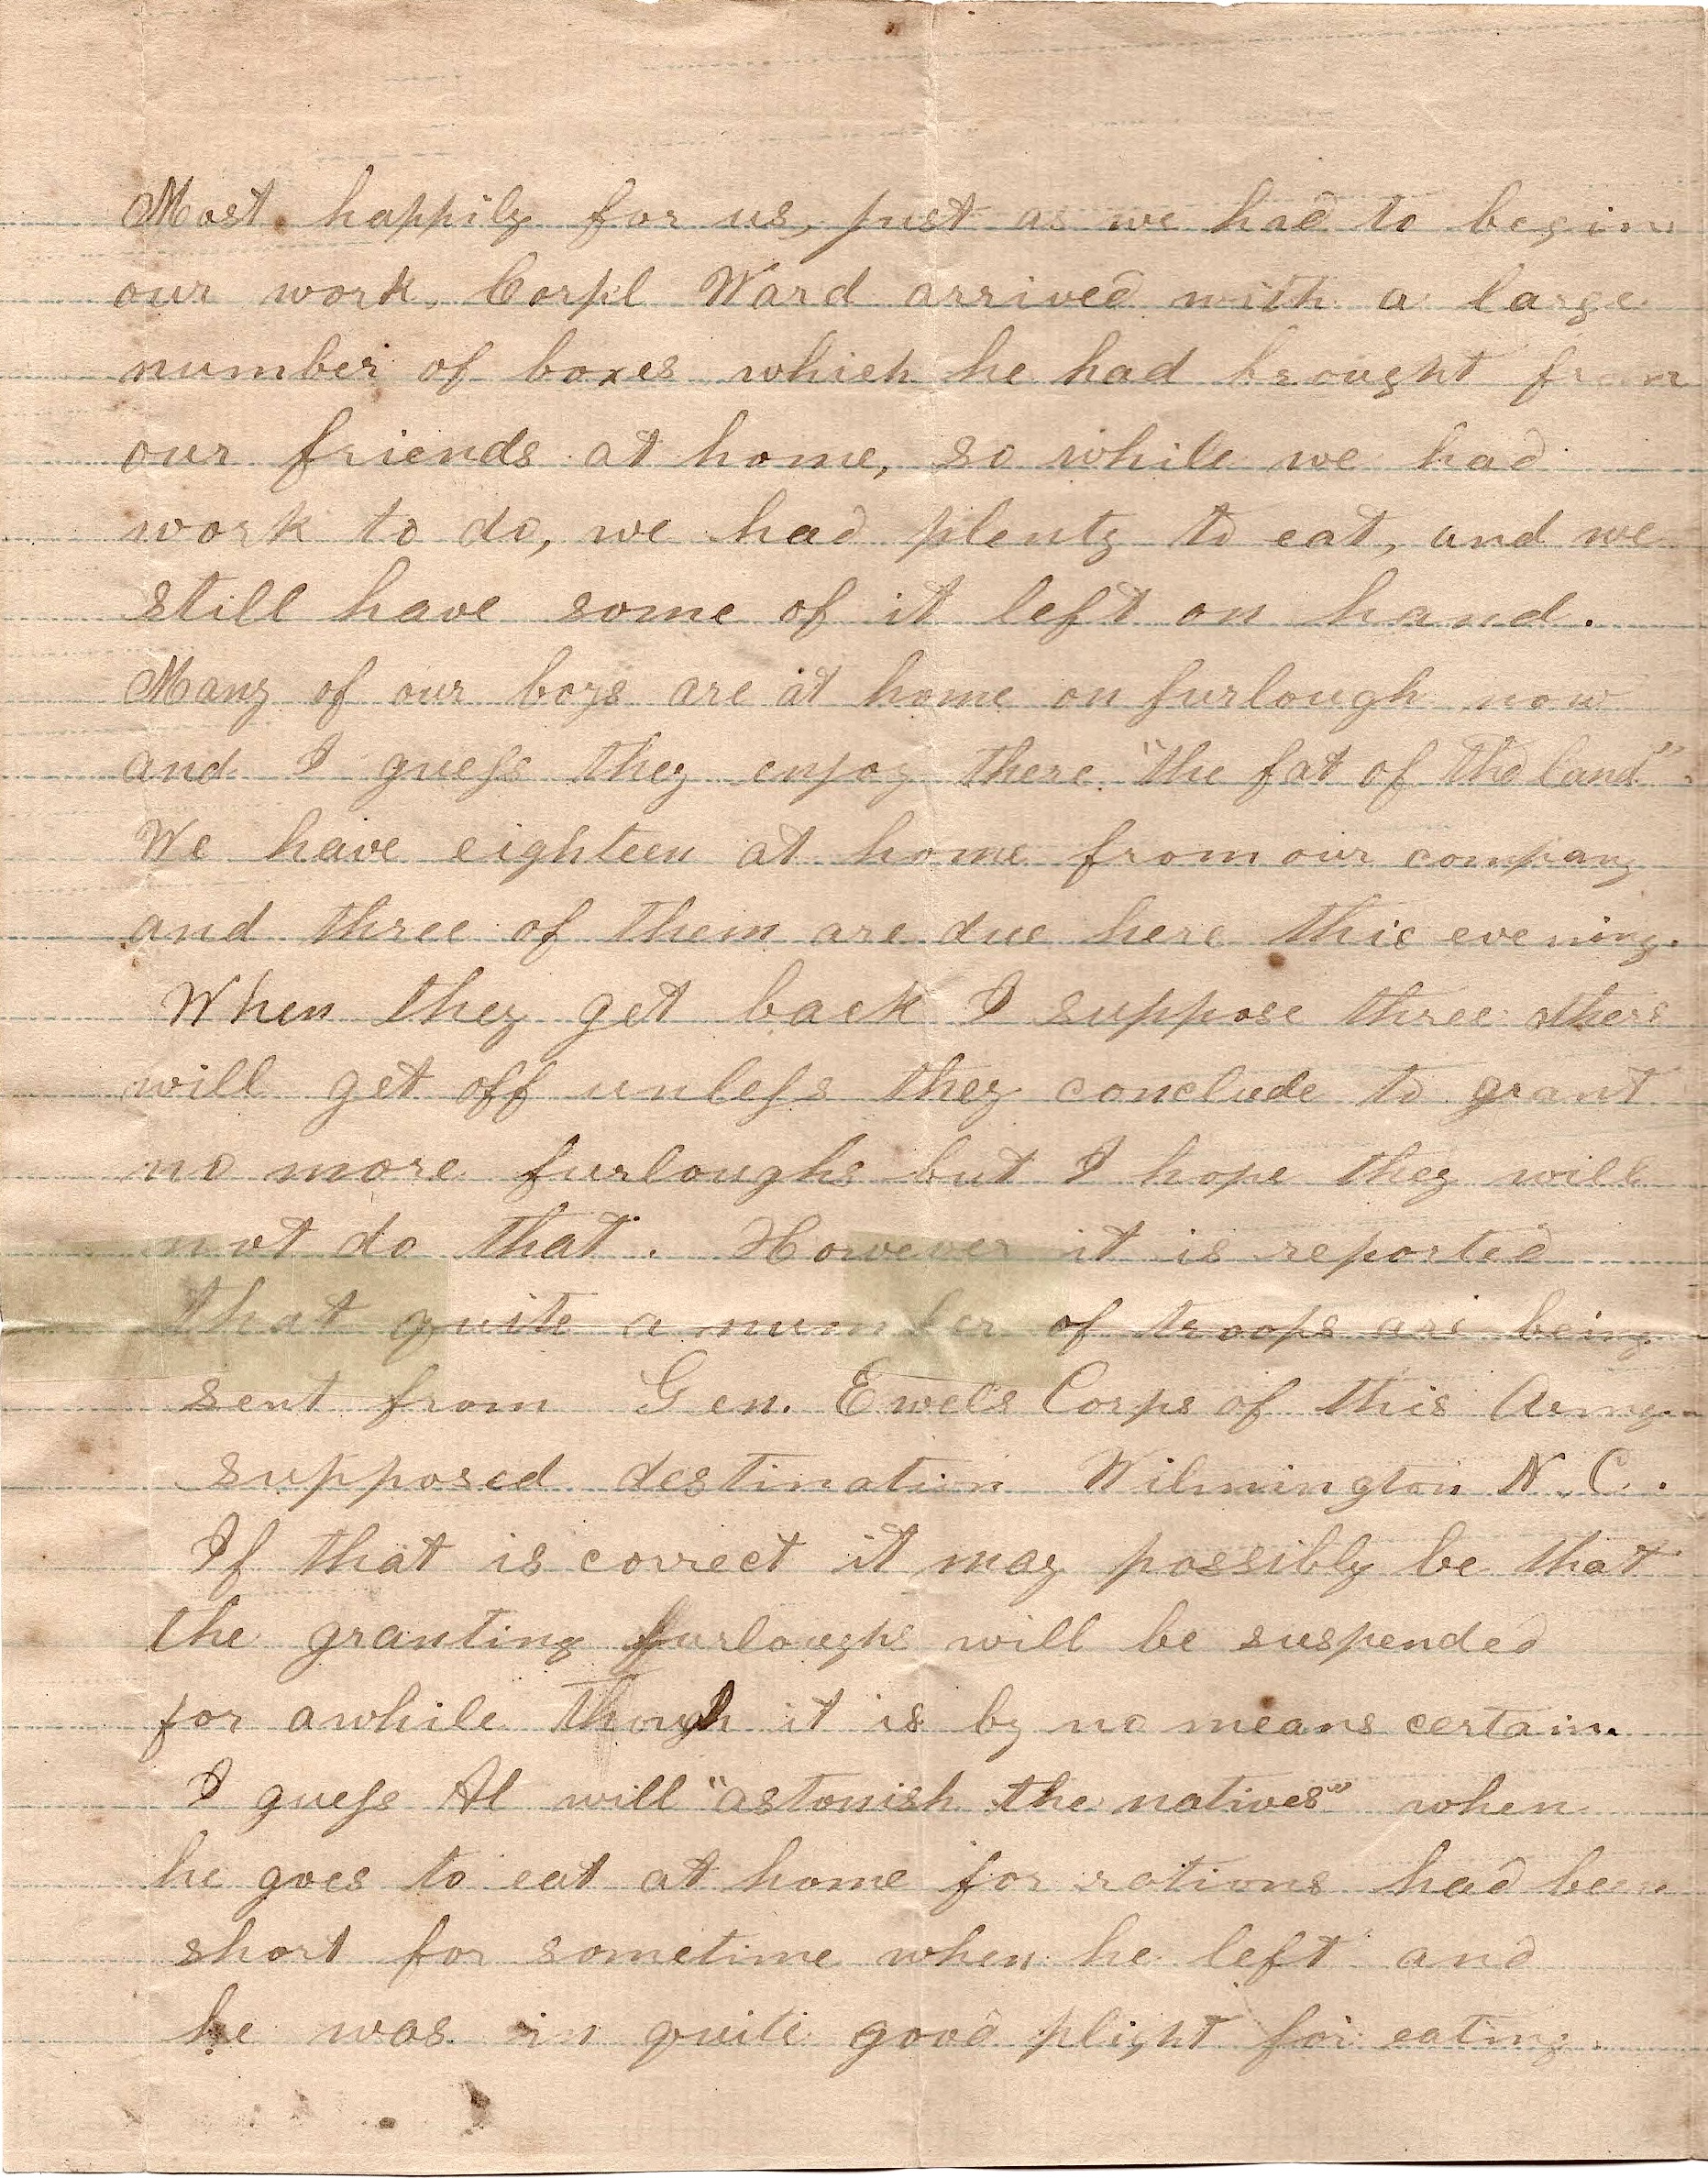 Most happily for us, just as we had to begin
our work, Corpl Ward arrived with a large
number of boxes which he had brought from
our friends at home, so while we had
work to do, we had plenty to eat, and we
still have some of it left on hand.
Many of our boys are at home on furlough now
and I guess they enjoy there "the fat of the land".
We have eighteen at home from our company
and three of them are due here this evening.
When they get back I suppose three others
will get off unless they conclude to grant
no more furloughs but I hope they will
not do that. However it is reported
that quite a number of troops are being
sent from Gen. Ewels Corps of this Army
supposed destination Wilmington N.C.
If that is correct it may possibly be that
the granting furloughs will be suspended
for awhile though it is by no means certain.
I guess Al will "astonish the natives" when
he goes to eat at home for rations had been
short for sometime when he left and
he was in quite good plight for eating.